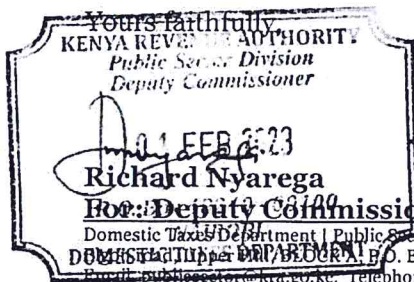 Yours faithfully,
KENYA REVENUE AUTHORITY
Public Sector Division
Deputy Commissioner
01 FEB 2023
Richard Nyarega
For: Deputy Commissio
Domestic Taxes Department | Public Se
DOMESTIC TAXES DEPARTMENT
Upper Hill, BLOCK A, P.O. B
Email: publicsector@kra.go.ke, Telepho